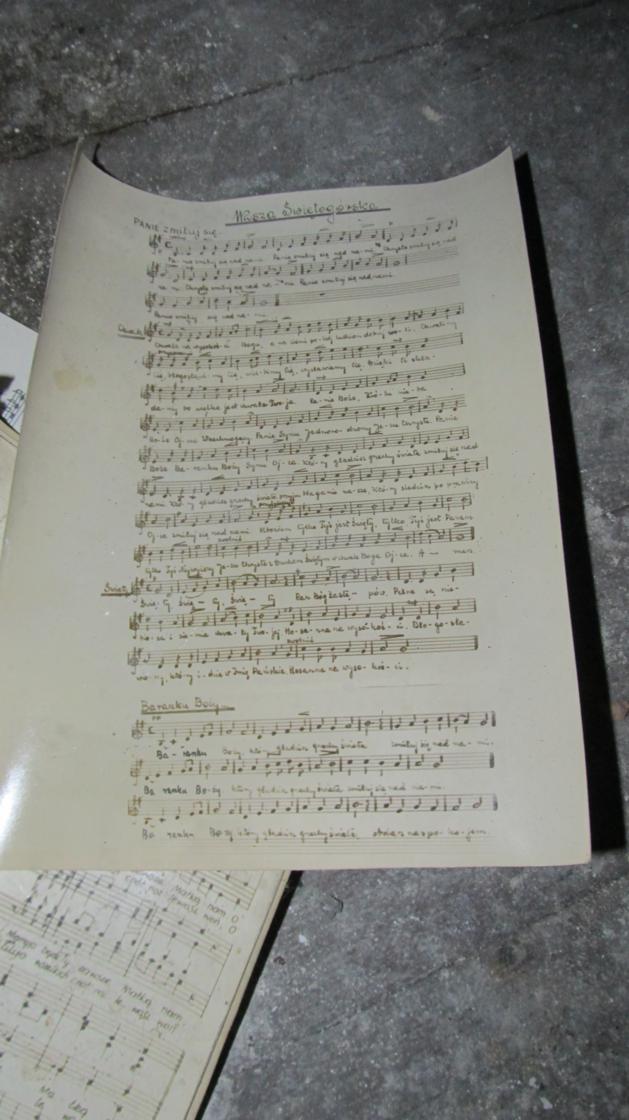 Msza Świętogórska
PANIE zmiłuj się.
Pa-nie zmiłuj się nad nami. Panie zmiłuj się nad na-mi. Chryste zmiłuj się nad
na-mi. Chryste zmiłuj się nad na-mi. Panie zmiłuj się nad nami.
Panie zmiłuj się nad na-mi.
Chwała
Chwała na wysokoś-ci Bogu, a na ziemi po-kój ludziom dobrej wo-li. Chwali-my
Cię, błogosławi-my Cię, wielbimy Cię, wysławiamy Cię, dzięki Ci skła-
da-my bo wielka jest chwała Two-ja. Pa-nie Boże, Kró-lu nie-ba
Bo-że Oj-cze Wszechmogący Panie Synu Jednoro-dzony Je-zu Chryste. Panie
Boże Ba-ranku Boży Synu Oj-ca. Któ-ry gładzisz grzechy świata zmiłuj się nad
nami. Któ-ry gładzisz grzechy świata przyjm błaganie na-sze. Któ-ry siedzisz po prawicy
Oj-ca zmiłuj się nad nami. Albowiem tylko Tyś jest Święty, tylko Tyś jest Panem
tylko Tyś Najwyższy Je-zu Chryste z Duchem Świętym w chwale Boga Oj-ca. A - men.
Święty
Świę-ty, Świę-ty, Świę-ty Pan Bóg Zastę-pów. Pełne są nie-
bio-sa i zie-mia chwa-ły Two-jej Ho-sa-nna na wysokoś-ci. Bło-go-sła-
wio-ny, któ-ry i-dzie w Imię Pańskie. Hosanna na wyso-koś-ci.
Baranku Boży
Ba-ranku Boży, któ-ry gładzisz grzechy świata zmiłuj się nad na-mi.
Ba ranku Bo-ży, który gładzisz grzechy świata zmiłuj się nad na-mi.
Ba ranku Bo-ży który gładzisz grzechy świata, obdarz nas po-ko-jem.
Matką nam
Matką nam